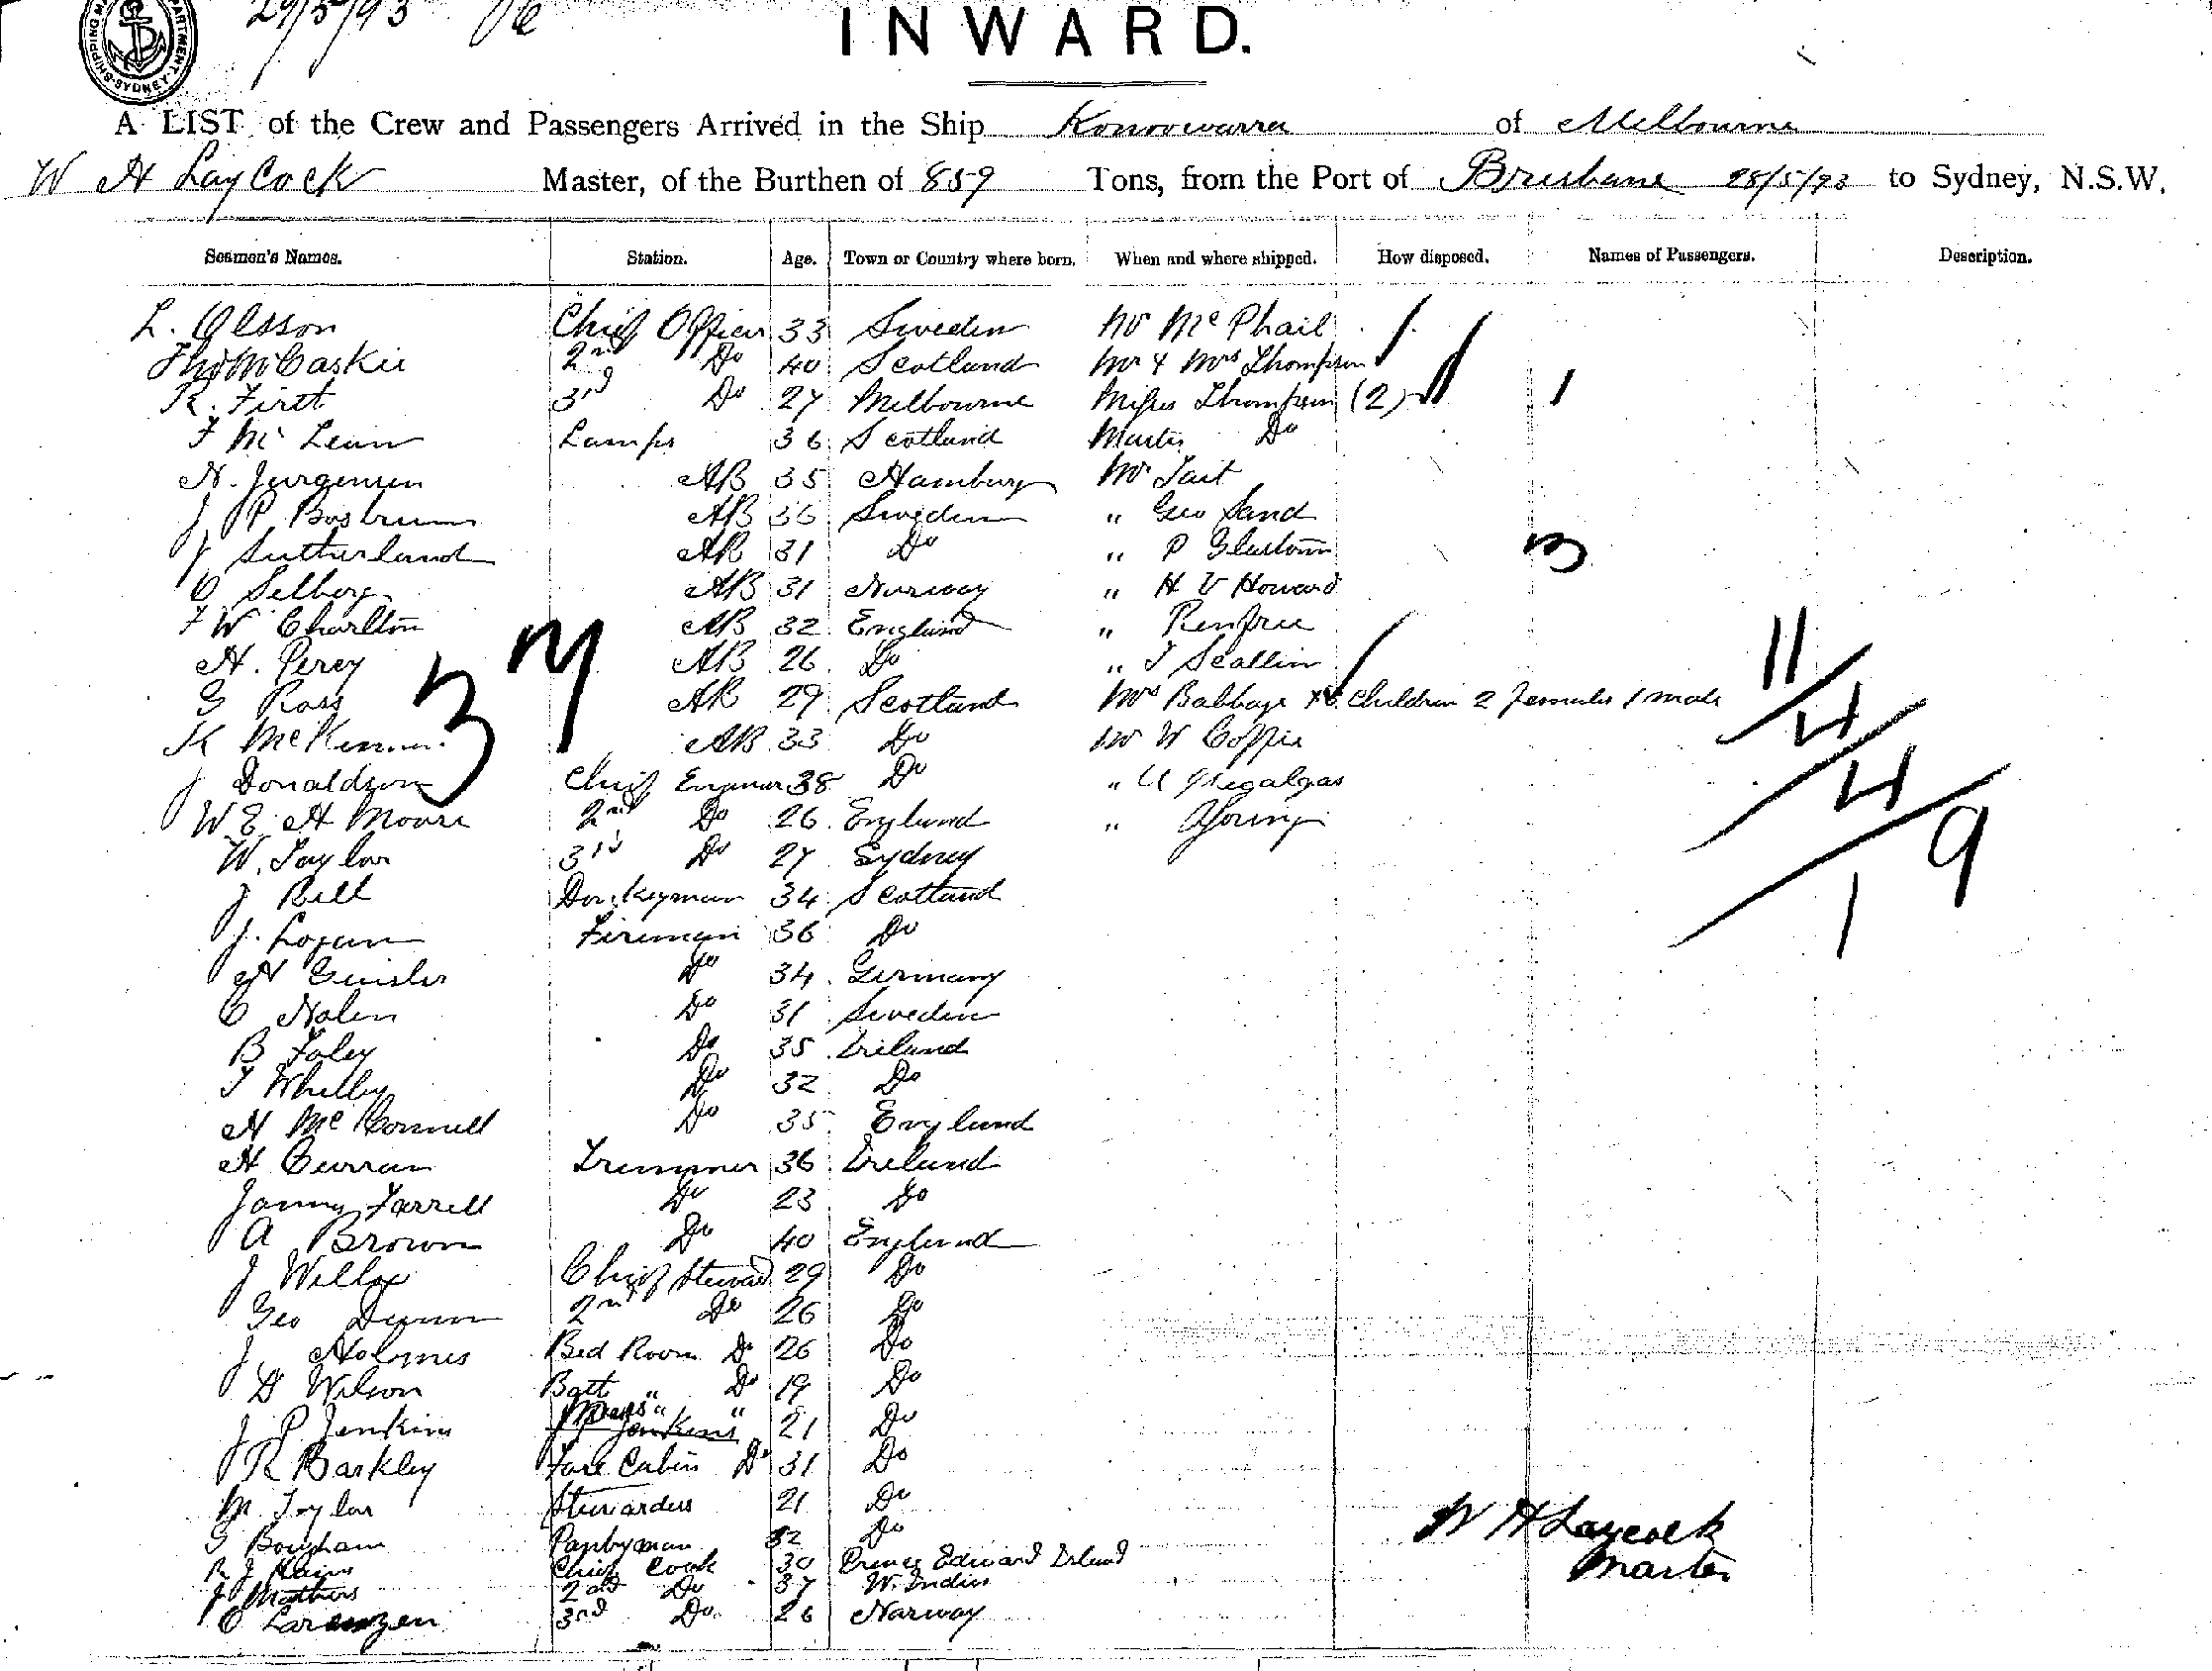 29/5/93
INWARD.
A LIST of the Crew and Passengers Arrived in the Ship Konoowarra of Melbourne
W H Laycock Master, of the Burthen of 859 Tons, from the Port of Brisbane 28/5/93 to Sydney, N.S.W.
Seamen's Names. Station. Age. Town or Country where born. When and where shipped. How disposed. Names of Passengers. Description.
L. Olsson Chief Officer 33 Sweden Mr McPhail
Thos McCaskie 2nd Do 40 Scotland Mr & Mrs Thompson
R. First 3rd Do 27 Melbourne Misses Thompson (2) 1
F Mc Lean Lamps 36 Scotland Master Do
N. Jurgensen AB 35 Hamburg Mr Tait
J P Bostrum AB 36 Sweden " Geo Sand
J Sutherland AB 31 Do " P 3
O Selberg AB 31 Norway " H V Howard
F W Charlton AB 32 England " Renfree
H. Percy AB 26 Do " J Scallin 11
G Ross AB 29 Scotland Mrs Babbage & Children 2 females 1 male
37
K McKinnon AB 33 Do Mr W Coffie 4
J Donaldson Chief Engineer 38 Do " 4
W E H Moore 2nd Do 26 England " Young 9
W. Taylor 3rd Do 27 Sydney
J Bell Donkeyman 34 Scotland 1
J. Logan Fireman 36 Do
H Geisler Do 34 Germany
C Nolen Do 31 Sweden
B Foley Do 35 Ireland
T Whelby Do 32 Do
H McConnell Do 35 England
H Curran Trimmer 36 Ireland
James Farrell Do 23 Do
A Brown Do 40 England
J Willox Chief Steward 29 Do
Geo Dunn 2nd Do 26 Do
J Holmes Bed Room Do 26 Do
D Wilson Batt " Do 19 Do
J P Jenkins Mess " " 21 Do
R Barkley Fore Cabin Do 31 Do
M. Taylor Stewardess 21 Do
G Bougham Pantryman 32 Do
R J Chief Cook 30 Prince Edward Island
J Mathews 2nd Do 37 W. Indies
O Larenzen 3rd Do 26 Norway
W H Laycock
Master